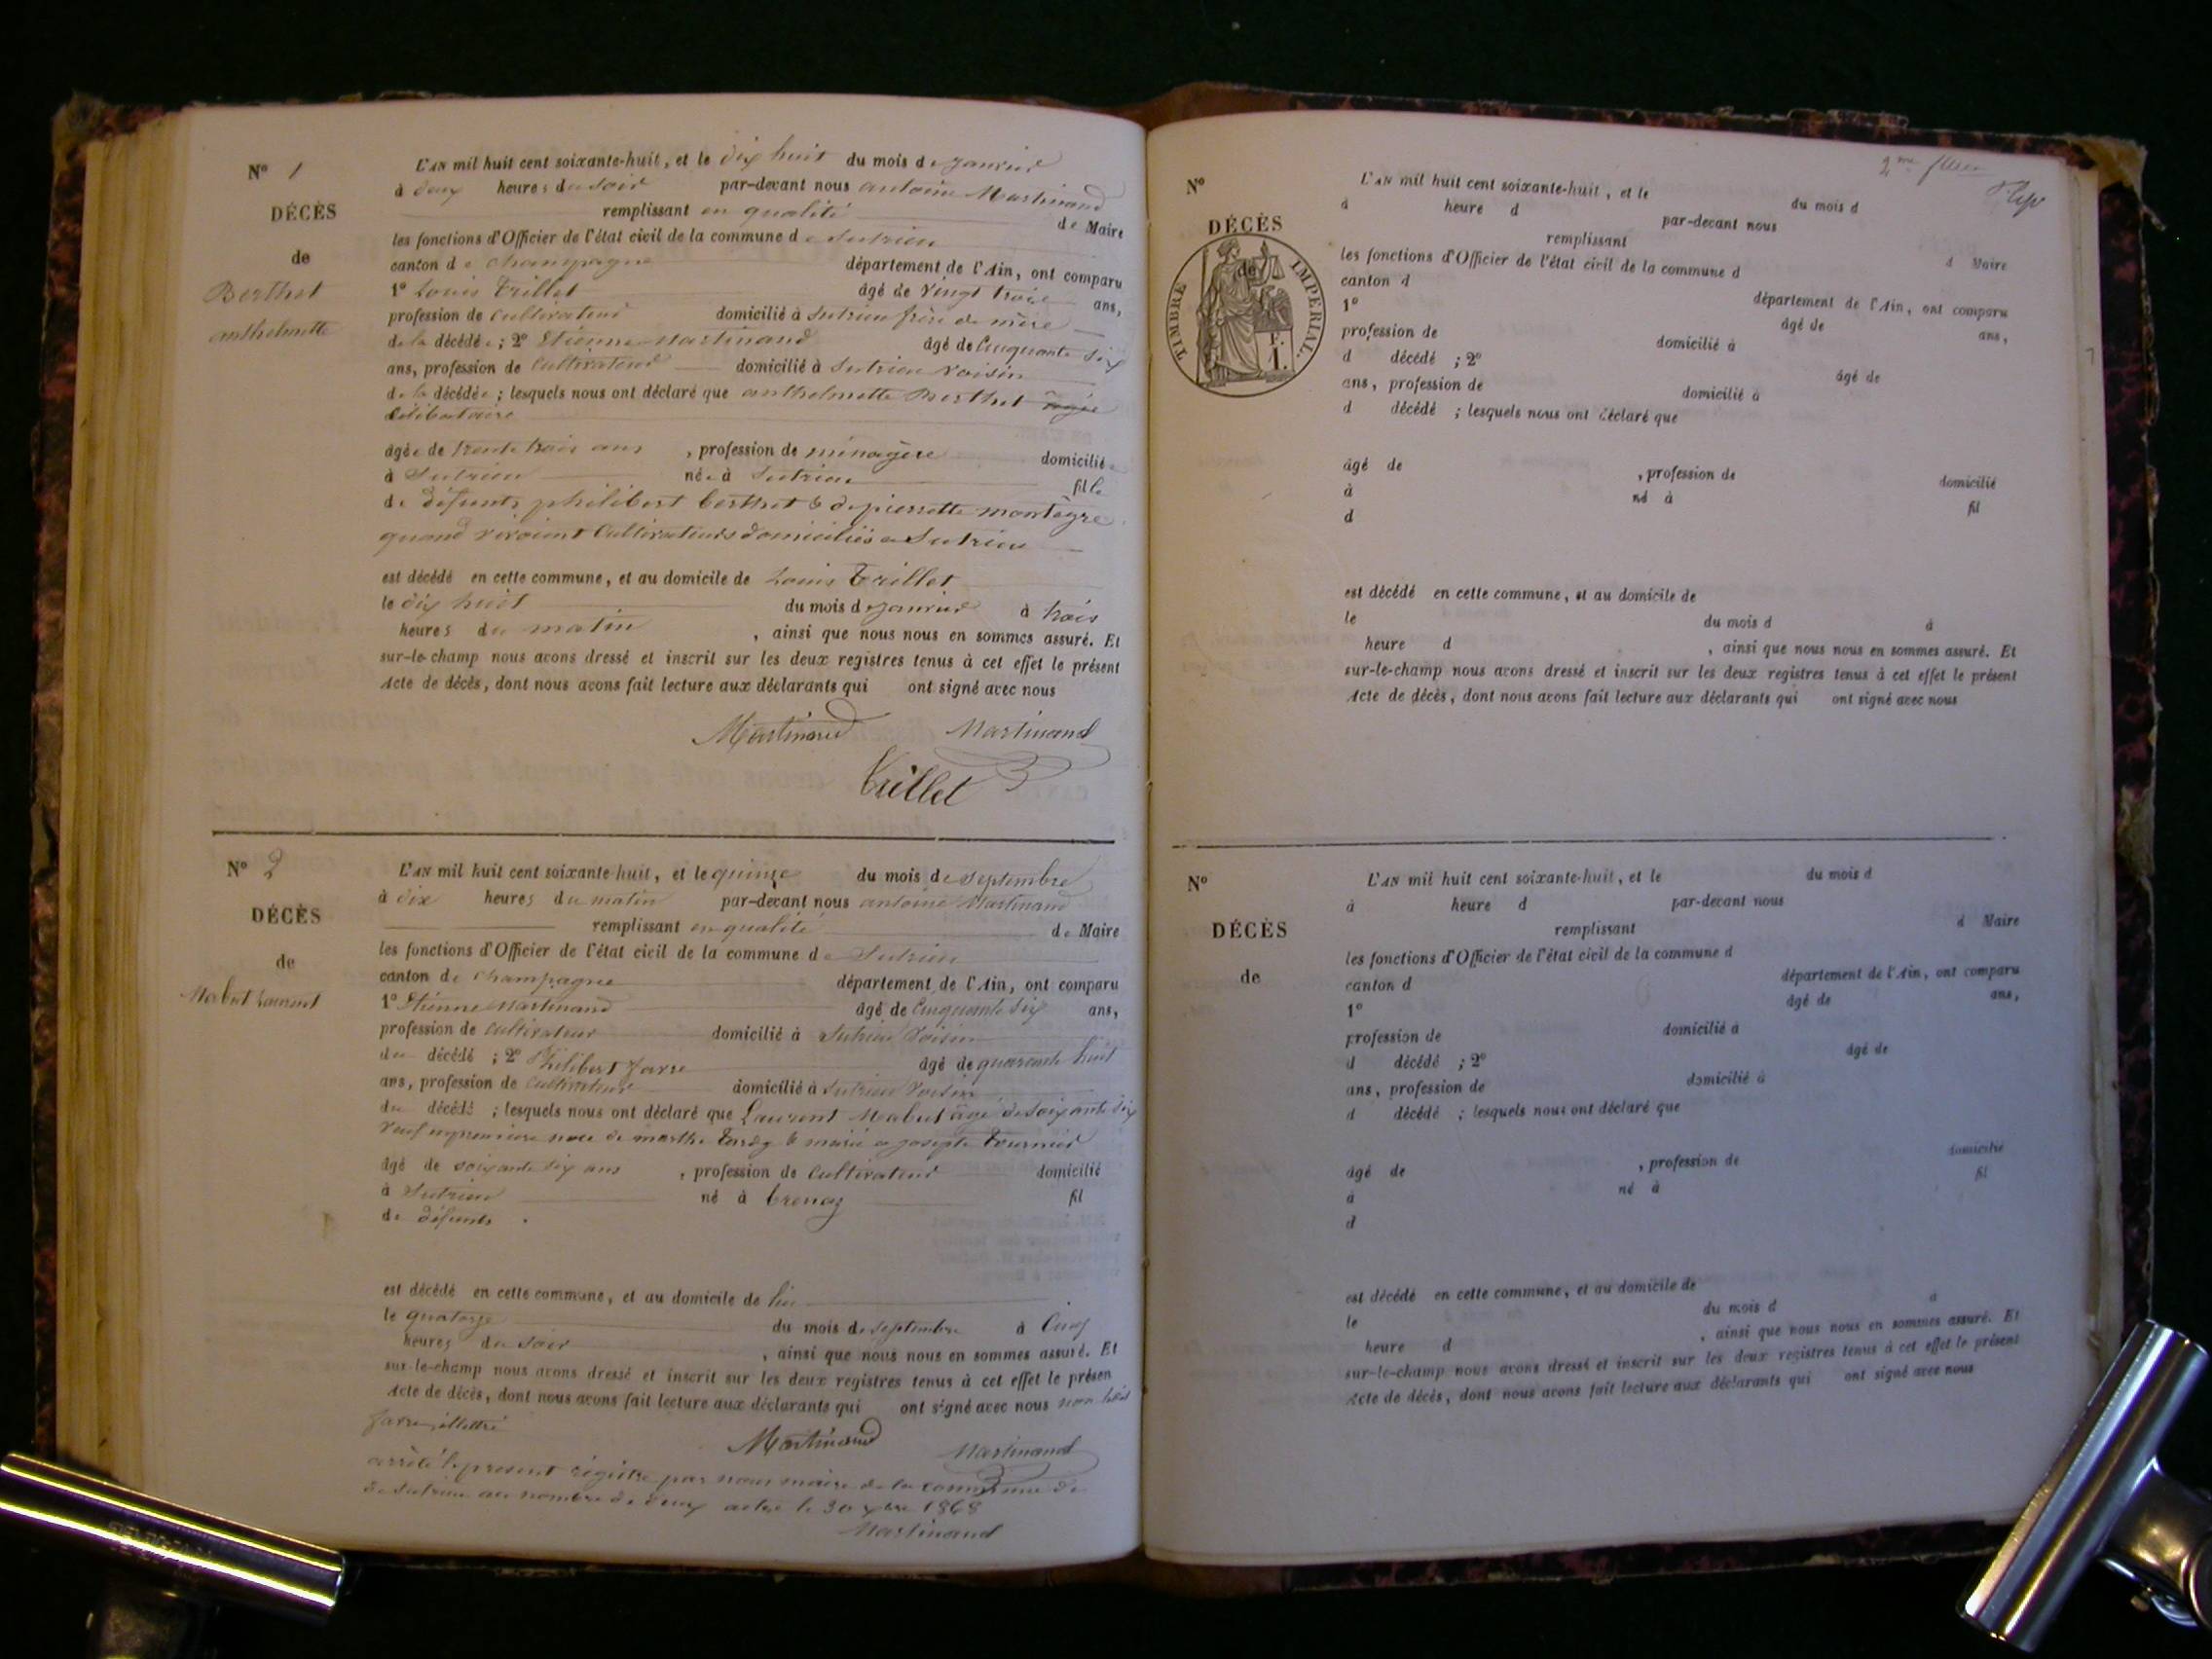 N° 1
DÉCÈS
de
Berthet
anthelmette
L'AN mil huit cent soixante-huit, et le dix huit du mois de janvier
à deux heures du soir par-devant nous antoine Martinand
remplissant en qualité de Maire
les fonctions d'Officier de l'état civil de la commune de Sutrieu
canton de champagne département de l'Ain, ont comparu
1° Louis Trillet âgé de vingt trois ans,
profession de cultivateur domicilié à Sutrieu frère de mère
de la décédée; 2° Etienne Martinand âgé de Cinquante six
ans, profession de Cultivateur domicilié à Sutrieu voisin
de la décédée; lesquels nous ont déclaré que anthelmette Berthet agée
Célibataire
âgée de trente trois ans, profession de ménagère domiciliée
à Sutrieu née à Sutrieu fille
de défunts philibert berthet & de pierrette montègre
quand vivoient Cultivateurs domiciliés a Sutrieu
est décédé en cette commune, et au domicile de Louis Trillet
le dix huit du mois de janvier à trois
heures du matin, ainsi que nous nous en sommes assuré. Et
sur-le-champ nous avons dressé et inscrit sur les deux registres tenus à cet effet le présent
Acte de décès, dont nous avons fait lecture aux déclarants qui ont signé avec nous
Martinand Martinand
Trillet
N° 2
DÉCÈS
de
Mabut Laurent
L'AN mil huit cent soixante-huit, et le quinze du mois de septembre
à dix heures du matin par-devant nous antoine Martinand
remplissant en qualité de Maire
les fonctions d'Officier de l'état civil de la commune de Sutrieu
canton de champagne département de l'Ain, ont comparu
1° Etienne Martinand âgé de Cinquante six ans,
profession de cultivateur domicilié à Sutrieu Voisin
du décédé; 2° Philibert Jarre âgé de quarante huit
ans, profession de Cultivateur domicilié à Sutrieu Voisin
du décédé; lesquels nous ont déclaré que Laurent Mabut âgé de soixante six
veuf en première noce de marthe & marié a josepte tournier
âgé de soixante six ans, profession de Cultivateur domicilié
à Sutrieu né à brenaz fil
de défunts
est décédé en cette commune, et au domicile de lui
le quatorze du mois de septembre à Cinq
heures du soir, ainsi que nous nous en sommes assuré. Et
sur-le-champ nous avons dressé et inscrit sur les deux registres tenus à cet effet le présen
Acte de décès, dont nous avons fait lecture aux déclarants qui ont signé avec nous non
Jarre illettré
Martinand Martinand
arrêté le present régistre par nous maire de la commune de
de Sutrieu au nombre de deux actes le 30 xbre 1868
Martinand
2me
N°
DÉCÈS
de
TIMBRE IMPÉRIAL.
F.
1.
L'AN mil huit cent soixante-huit, et le du mois d
à heure d par-devant nous
remplissant d Maire
les fonctions d'Officier de l'état civil de la commune d
canton d département de l'Ain, ont comparu
1° âgé de ans,
profession de domicilié à
d décédé ; 2° âgé de
ans, profession de domicilié à
d décédé ; lesquels nous ont déclaré que
âgé de , profession de domicilié
à né à fil
d
est décédé en cette commune, et au domicile de
le du mois d à
heure d , ainsi que nous nous en sommes assuré. Et
sur-le-champ nous avons dressé et inscrit sur les deux registres tenus à cet effet le présent
Acte de décès, dont nous avons fait lecture aux déclarants qui ont signé avec nous
N°
DÉCÈS
de
L'AN mil huit cent soixante-huit, et le du mois d
à heure d par-devant nous
remplissant d Maire
les fonctions d'Officier de l'état civil de la commune d
canton d département de l'Ain, ont comparu
1° âgé de ans,
profession de domicilié à
d décédé ; 2° âgé de
ans, profession de domicilié à
d décédé ; lesquels nous ont déclaré que
âgé de , profession de domicilié
à né à fil
d
est décédé en cette commune, et au domicile de
le du mois d à
heure d , ainsi que nous nous en sommes assuré. Et
sur-le-champ nous avons dressé et inscrit sur les deux registres tenus à cet effet le présent
Acte de décès, dont nous avons fait lecture aux déclarants qui ont signé avec nous